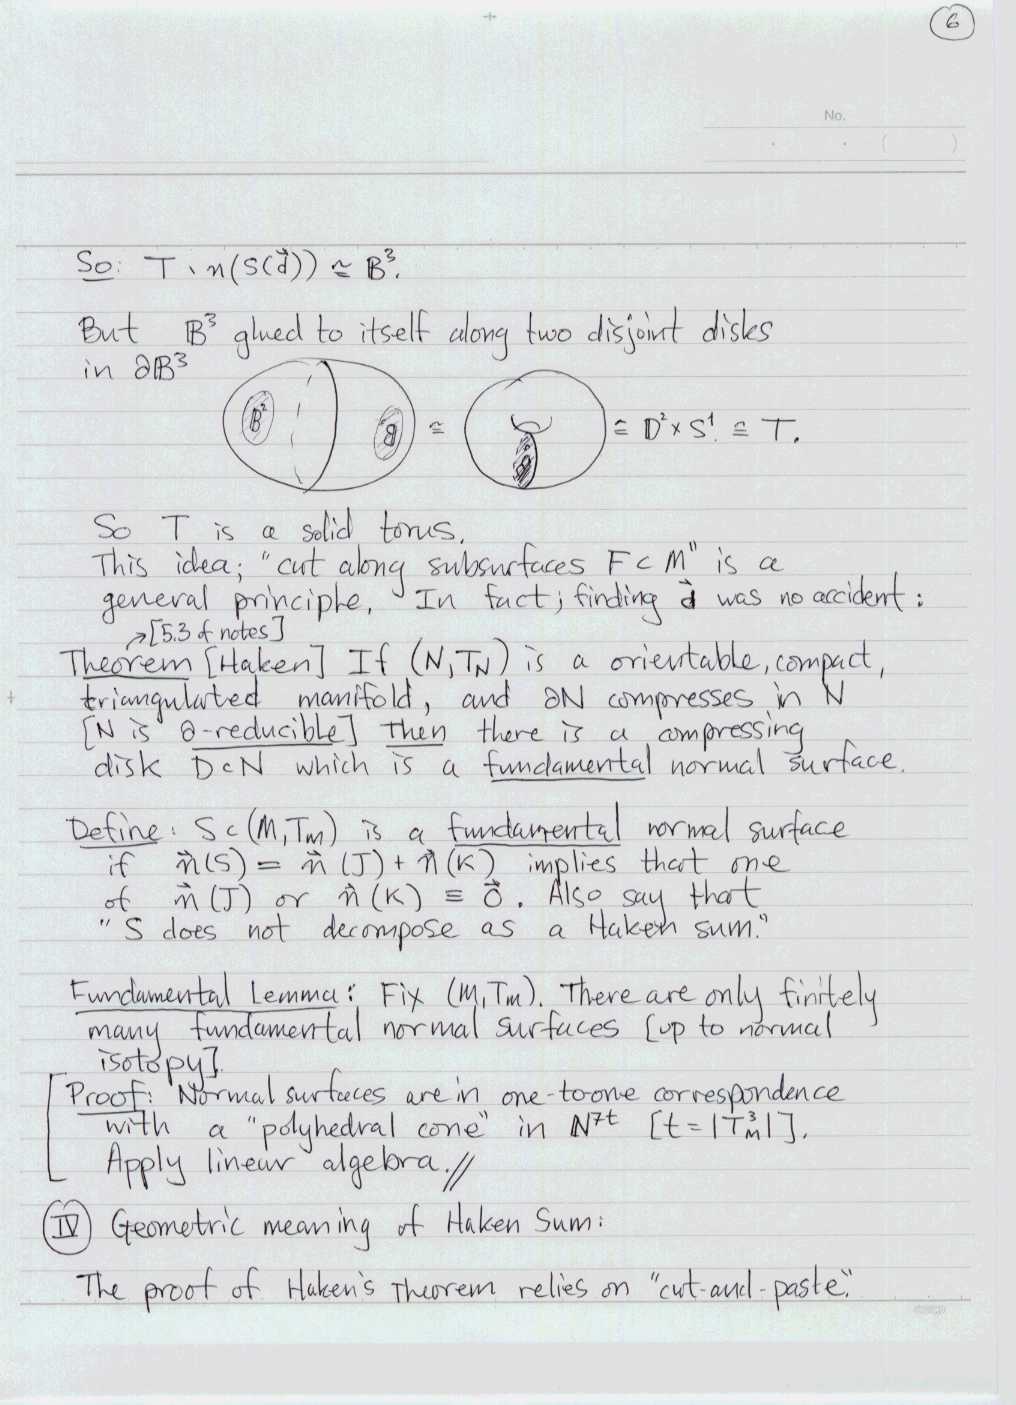 6
No.
So: T \ n(S(d⃗)) ≅ B³.
But B³ glued to itself along two disjoint disks
in ∂B³
B² B ≅ B ≅ D² × S¹. ≅ T.
So T is a solid torus.
This idea; "cut along subsurfaces F ⊂ M" is a
general principle. In fact; finding d⃗ was no accident:
→[5.3 of notes]
Theorem [Haken] If (N, T_N) is a orientable, compact,
triangulated manifold, and ∂N compresses in N
[N is ∂-reducible] Then there is a compressing
disk D⊂N which is a fundamental normal surface.
Define: S ⊂ (M, T_M) is a fundamental normal surface
if n⃗(S) = n⃗(J) + n⃗(K) implies that one
of n⃗(J) or n⃗(K) ≡ 0⃗. Also say that
"S does not decompose as a Haken sum."
Fundamental Lemma: Fix (M, T_M). There are only finitely
many fundamental normal surfaces [up to normal
isotopy].
Proof: Normal surfaces are in one-to-one correspondence
with a "polyhedral cone" in N^7t [t = |T_M^3|].
Apply linear algebra.//
IV Geometric meaning of Haken Sum:
The proof of Haken's Theorem relies on "cut-and-paste".